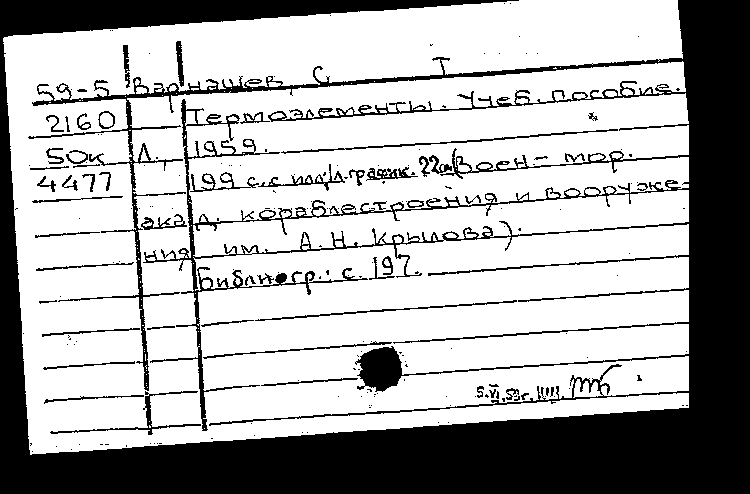 59-5 Варнашев, С Т
2160 Термоэлементы. Учеб. пособие.
50к Л., 1959.
4477 199 с. с илл; 1 л. график. 22 см (Воен-мор.
акад. кораблестроения и вооруже-
ния им. А. Н. Крылова).
Библиогр.: с. 197.
5.VI.59г.